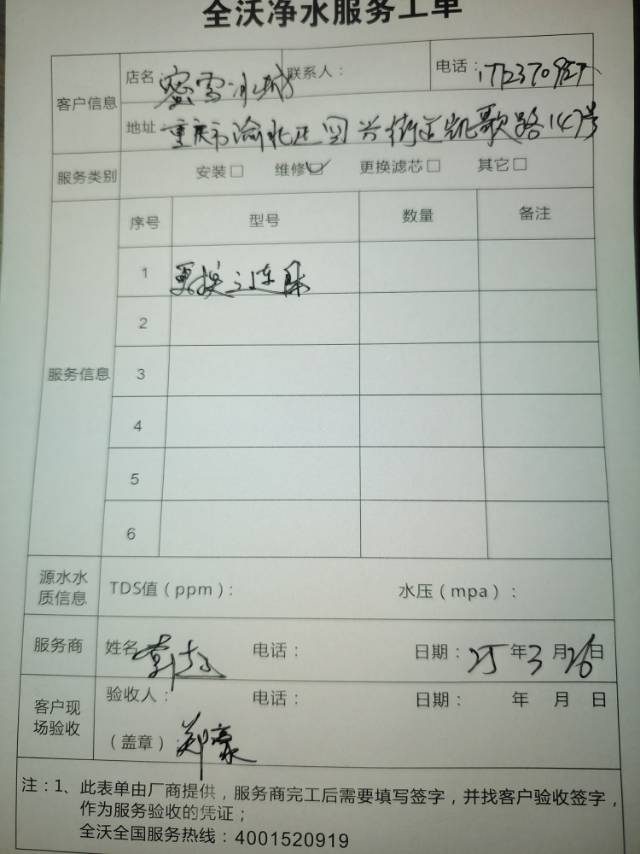 全沃净水服务工单
客户信息
店名 蜜雪冰城 联系人： 电话：
地址 重庆市渝北区回兴街道凯歌路147号
服务类别 安装□ 维修☑ 更换滤芯□ 其它□
服务信息
序号 型号 数量 备注
1 更换
2
3
4
5
6
源水水质信息 TDS值（ppm）： 水压（mpa）：
服务商 姓名 电话： 日期：25年3月26日
客户现场验收 验收人： 电话： 日期： 年 月 日
（盖章）：郑豪
注：1、此表单由厂商提供，服务商完工后需要填写签字，并找客户验收签字，
作为服务验收的凭证；
全沃全国服务热线：4001520919